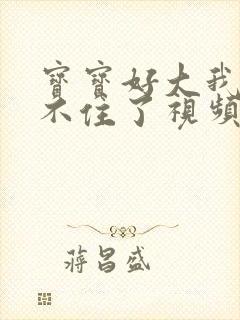 寶寶好大我
不住了視頻
蔣昌盛